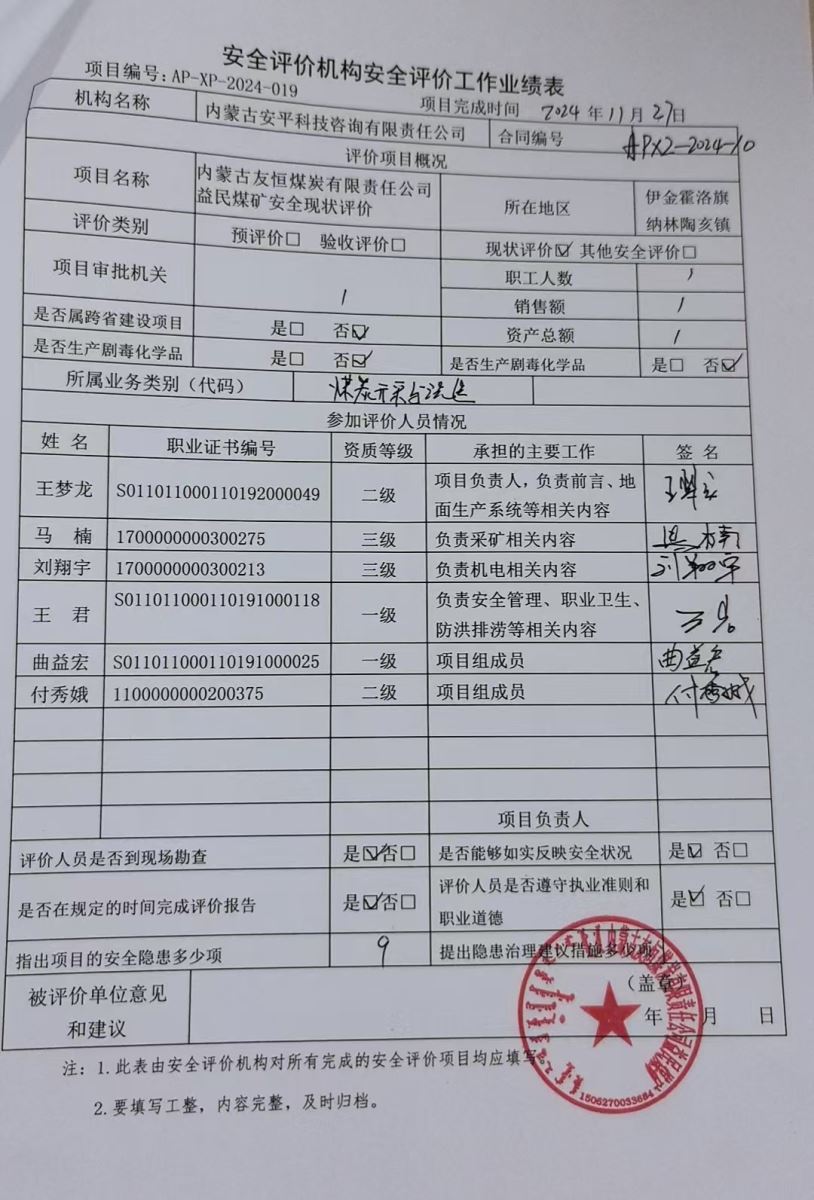 安全评价机构安全评价工作业绩表
项目编号：AP-XP-2024-019
项目完成时间 2024 年 11 月 27 日
机构名称 内蒙古安平科技咨询有限责任公司 合同编号 APXZ-2024-10
评价项目概况
项目名称 内蒙古友恒煤炭有限责任公司
益民煤矿安全现状评价
所在地区 伊金霍洛旗
纳林陶亥镇
评价类别 预评价□ 验收评价□ 现状评价☑ 其他安全评价□
项目审批机关 / 职工人数 /
销售额 /
是否属跨省建设项目 是□ 否☑ 资产总额 /
是否生产剧毒化学品 是□ 否☑ 是否生产剧毒化学品 是□ 否☑
所属业务类别（代码） 煤炭开采与洗选
参加评价人员情况
姓 名 职业证书编号 资质等级 承担的主要工作 签 名
王梦龙 S011011000110192000049 二级 项目负责人，负责前言、地
面生产系统等相关内容
马 楠 1700000000300275 三级 负责采矿相关内容 马楠
刘翔宇 1700000000300213 三级 负责机电相关内容 刘翔宇
王 君 S011011000110191000118 一级 负责安全管理、职业卫生、
防洪排涝等相关内容 王君
曲益宏 S011011000110191000025 一级 项目组成员 曲益宏
付秀娥 1100000000200375 二级 项目组成员 付秀娥
项目负责人
评价人员是否到现场勘查 是☑否□ 是否能够如实反映安全状况 是☑ 否□
是否在规定的时间完成评价报告 是☑否□ 评价人员是否遵守执业准则和
职业道德 是☑ 否□
指出项目的安全隐患多少项 9 提出隐患治理建议措施多少项
被评价单位意见
和建议
（盖章）
年 月 日
1506270033684
注：1.此表由安全评价机构对所有完成的安全评价项目均应填写。
2.要填写工整，内容完整，及时归档。